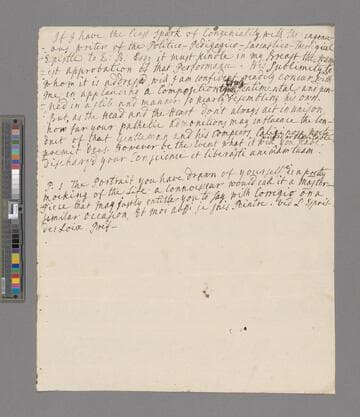 If I have the least spark of Congeniality with the ingeni-
-ous writer of the Politico-Pedagogic-Sarcastico-Theological
Epistle to E. B. Esqr it must kindle in my Breast the warm-
-est approbation of that Performance. His Sublimity to
whom it is addressed will I am confident readily concur with
me in applauding a Composition truly Sentimental and pen-
ned in a stile and manner so nearly resembling his own.
But, as the Head and the Heart don't always act in unison
how far your pathetic Admonitions may influence the Con-
duct of that Gentleman and his Compeers
premit Deus. However be the Event what it will you have
discharg'd your Conscience et liberasti animam tuam.
P.S. The Portrait you have drawn of yourself is a pretty
mocking of the Life a Connoisseur would call it a Master-
piece that may justly entitle you to say with Corregio on a
similar occasion, Et moi aussi je suis Peintre. Vid L'Esprit
des Loix Pref—